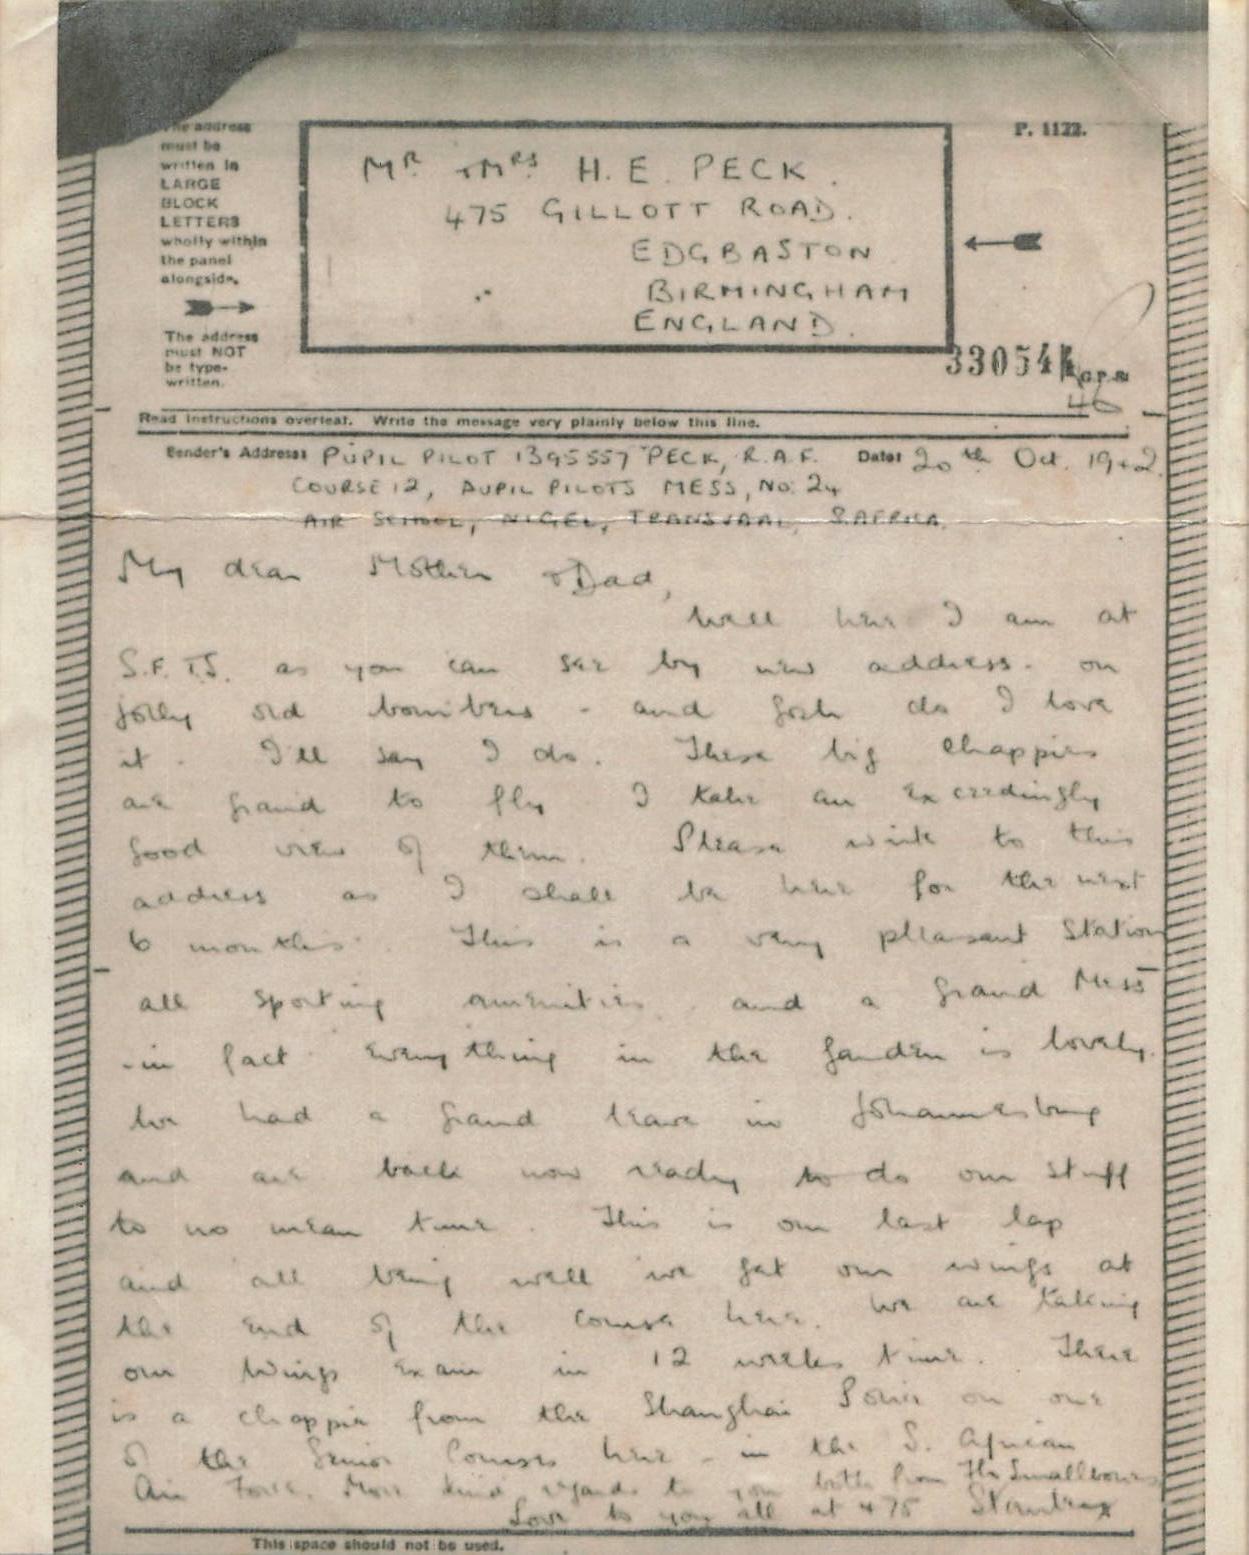 The address
must be
written in
LARGE
BLOCK
LETTERS
wholly within
the panel
alongside.
The address
must NOT
be type-
written.
Mr + Mrs H. E. PECK.
475 GILLOTT ROAD.
EDGBASTON
BIRMINGHAM
ENGLAND.
P. 1122.
33054
46
Read instructions overleaf. Write the message very plainly below this line.
Sender's Address: PUPIL PILOT 1395557 PECK, R.A.F. Date: 20th Oct. 1942.
COURSE 12, PUPIL PILOTS MESS, No. 24
AIR SCHOOL, NIGEL, TRANSVAAL, S. AFRICA.
My dear Mother + Dad,
Well here I am at
S.F.T.S. as you can see by new address - on
jolly old bombers - and gosh do I love
it. I'll say I do. These big chappies
are grand to fly I take an exceedingly
good view of them. Please write to this
address as I shall be here for the next
6 months. This is a very pleasant Station
all sporting amenities and a grand Mess
- in fact everything in the garden is lovely.
We had a grand leave in Johannesburg
and are back now ready to do our stuff
to no mean tune. This is our last lap
and all being well we get our wings at
the end of the course here. We are taking
our Wings Exam in 12 weeks time. There
is a chappie from the Shanghai Police on one
of the Senior Courses here - in the S. African
Air Force. More kind regards to you both from The Smallbones
Love to you all at 475
This space should not be used.